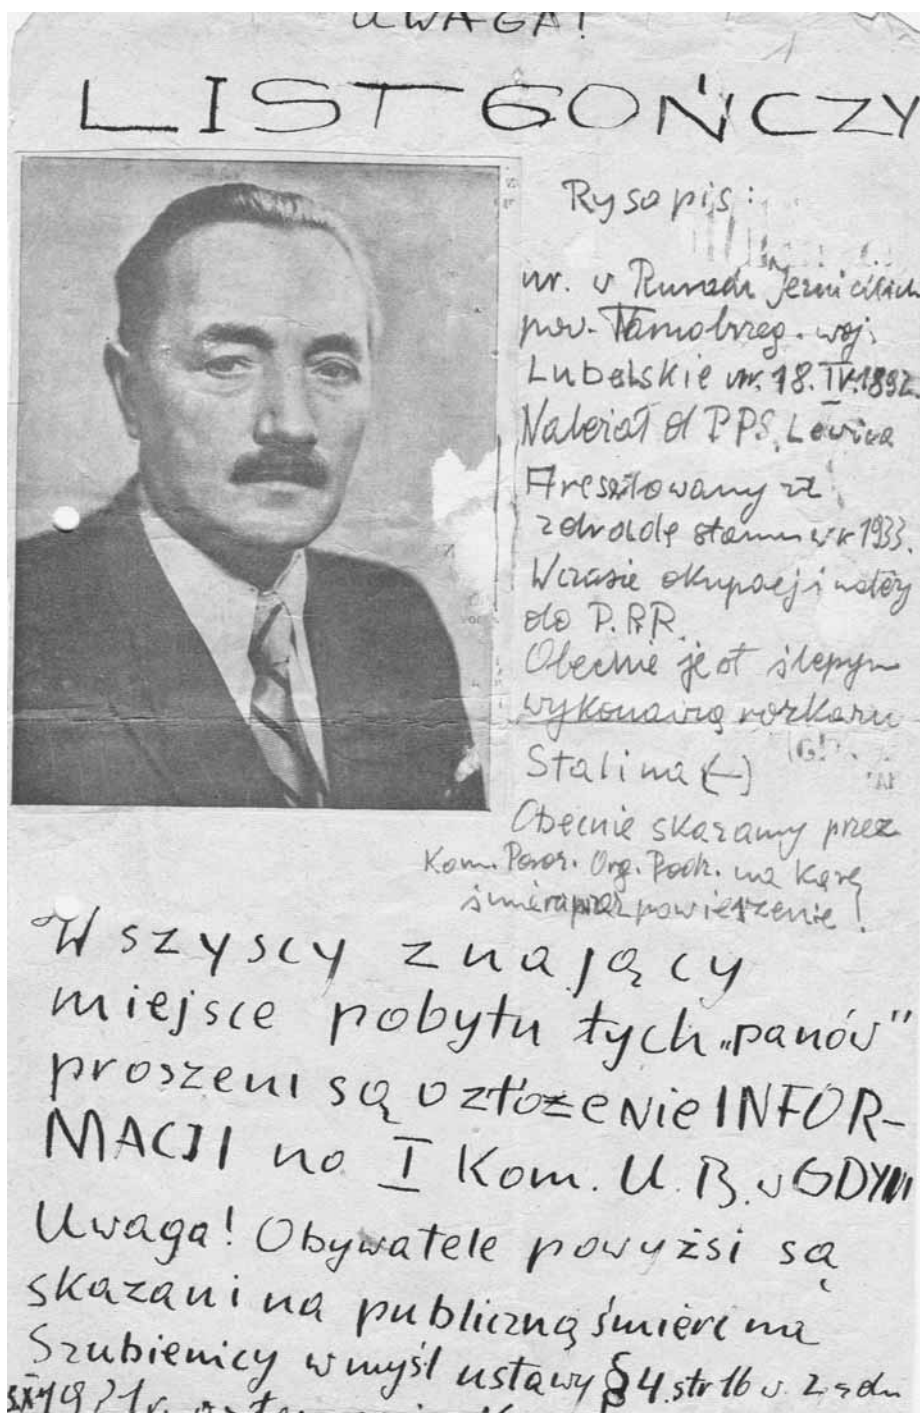 UWAGA!
LIST GOŃCZY
Rysopis:
ur. w Rurach Jezuickich
pow. Tarnobrzeg. woj.
Lubelskie ur. 18.IV.1892.
Należał d PPS, Lewica
Aresztowany za
zdradę stanu w r 1933.
W czasie okupacji należy
do P.P.R.
Obecnie jest ślepym
wykonawcą rozkazu
Stalina (—)
Obecnie skazany przez
Kom. Poror. Org. Podz. na karę
śmierci przez powieszenie!
Wszyscy znający
miejsce pobytu tych „panów"
proszeni są o złożenie INFOR-
MACJI na I Kom. U.B. w GDYNI
Uwaga! Obywatele powyżsi są
skazani na publiczną śmierć na
Szubienicy w myśl ustawy § 4. str 16 v. z dn